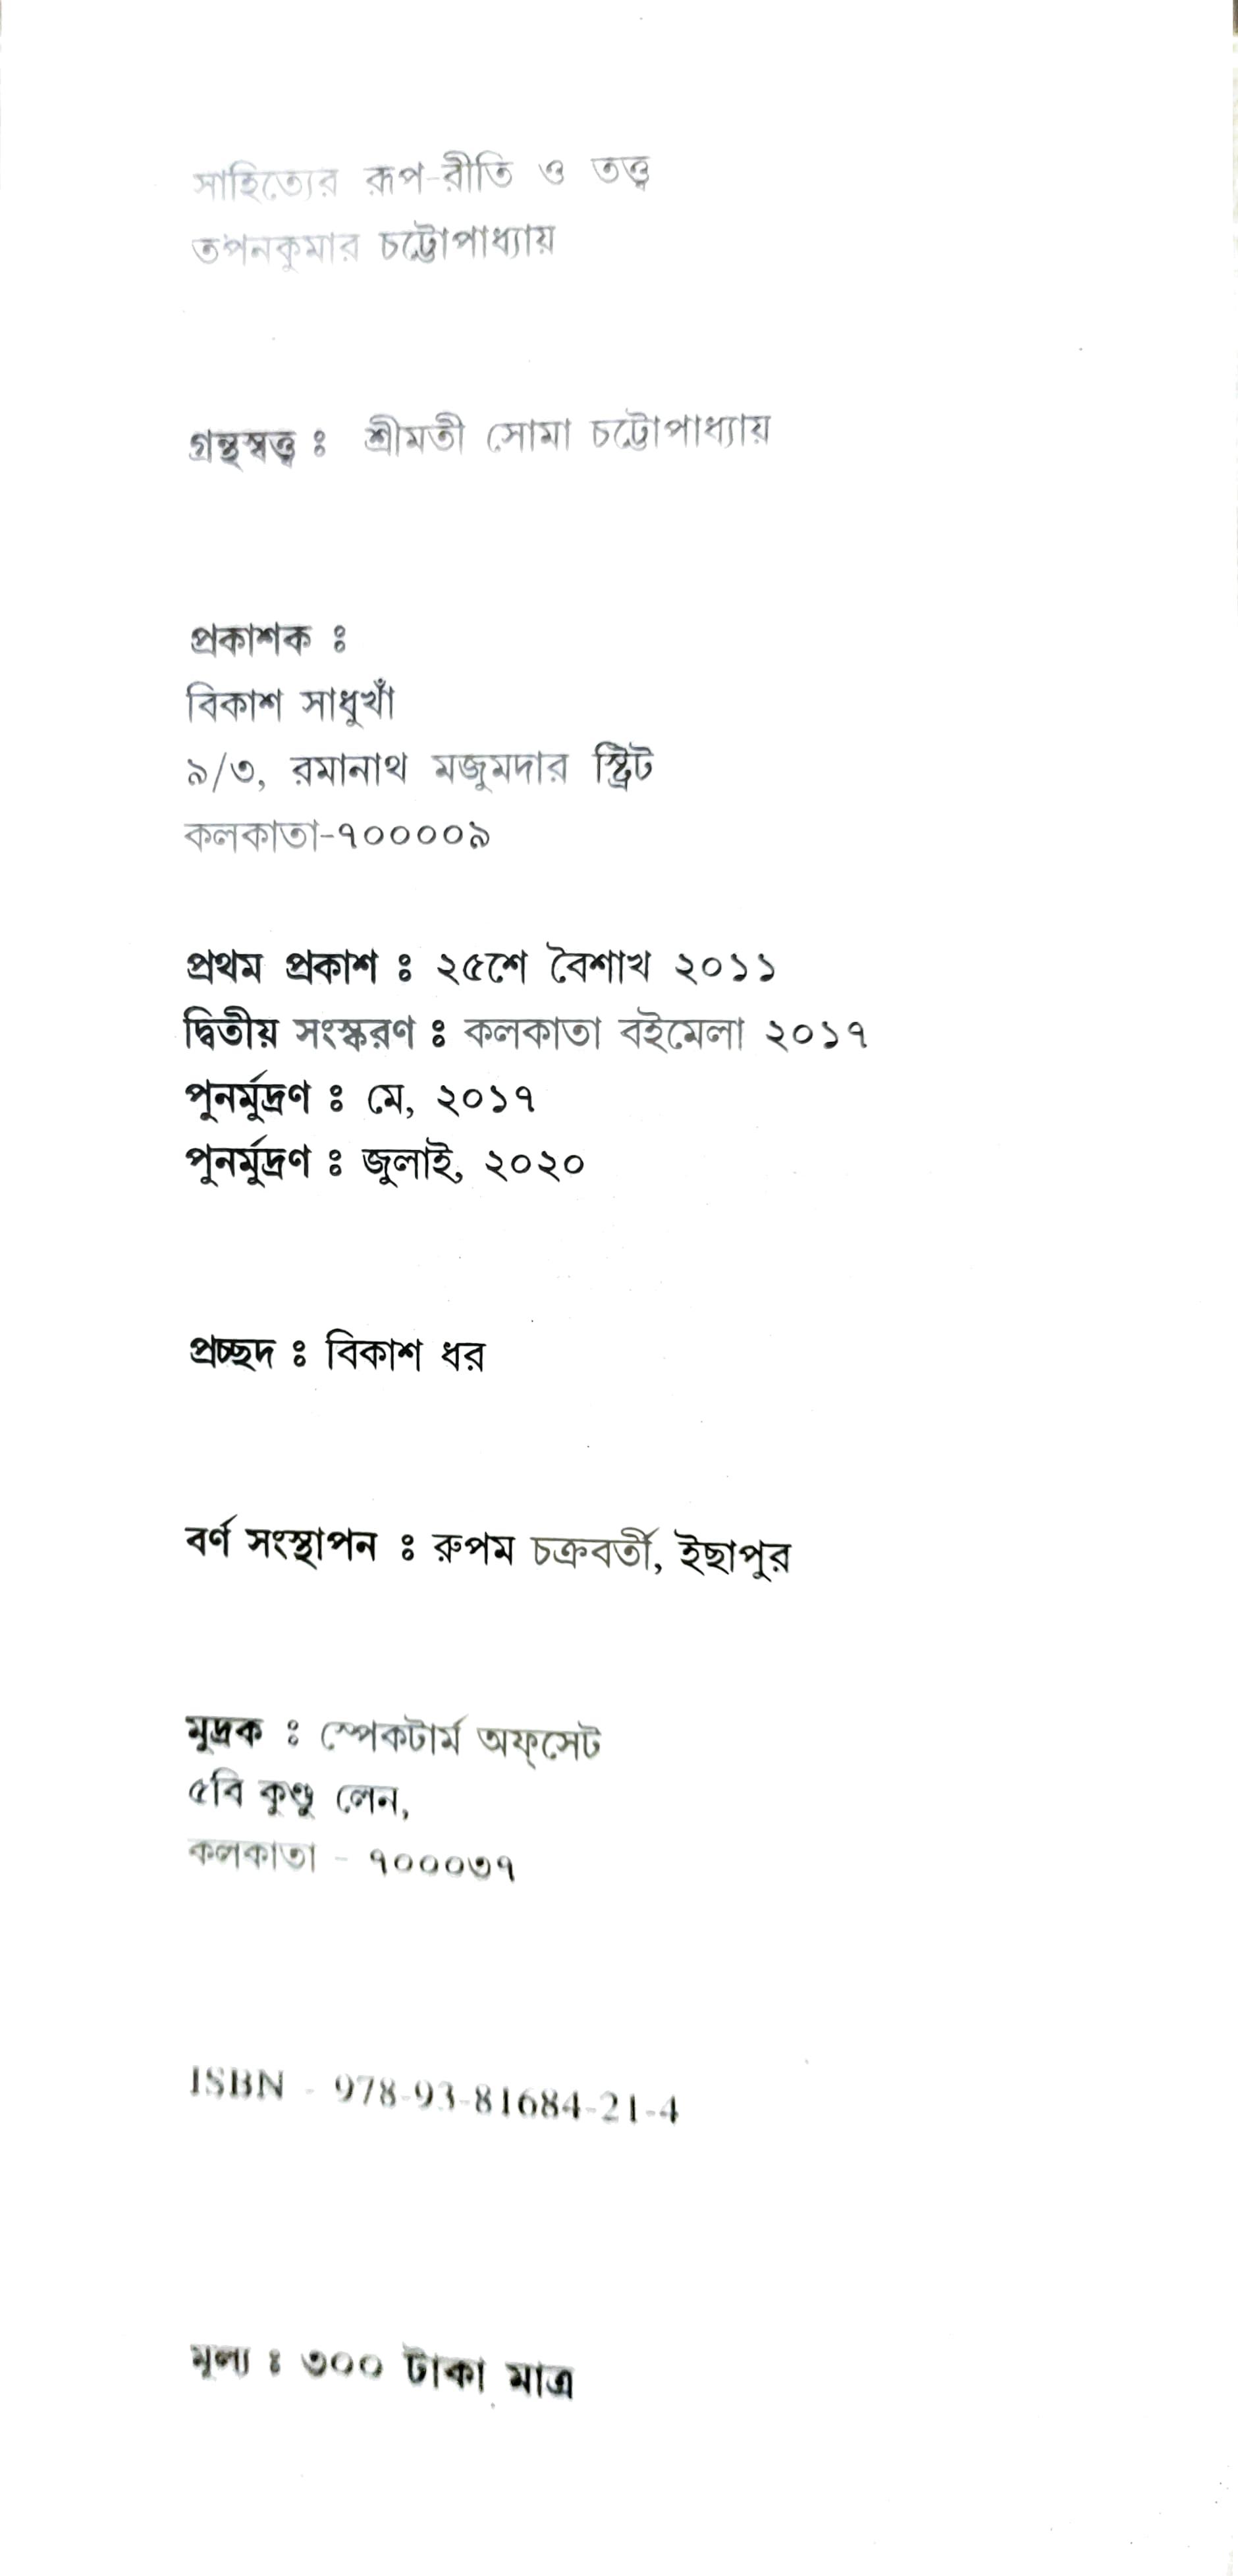 সাহিত্যের রূপ-রীতি ও তত্ত্ব
তপনকুমার চট্টোপাধ্যায়
গ্রন্থস্বত্ত্ব ঃ শ্রীমতী সোমা চট্টোপাধ্যায়
প্রকাশক ঃ
বিকাশ সাধুখাঁ
৯/৩, রমানাথ মজুমদার স্ট্রিট
কলকাতা-৭০০০০৯
প্রথম প্রকাশ ঃ ২৫শে বৈশাখ ২০১১
দ্বিতীয় সংস্করণ ঃ কলকাতা বইমেলা ২০১৭
পুনর্মুদ্রণ ঃ মে, ২০১৭
পুনর্মুদ্রণ ঃ জুলাই, ২০২০
প্রচ্ছদ ঃ বিকাশ ধর
বর্ণ সংস্থাপন ঃ রুপম চক্রবর্তী, ইছাপুর
মুদ্রক ঃ স্পেকটার্ম অফ্‌সেট
৫বি কুণ্ডু লেন,
কলকাতা - ৭০০০৩৭
ISBN - 978-93-81684-21-4
মূল্য ঃ ৩০০ টাকা মাত্র